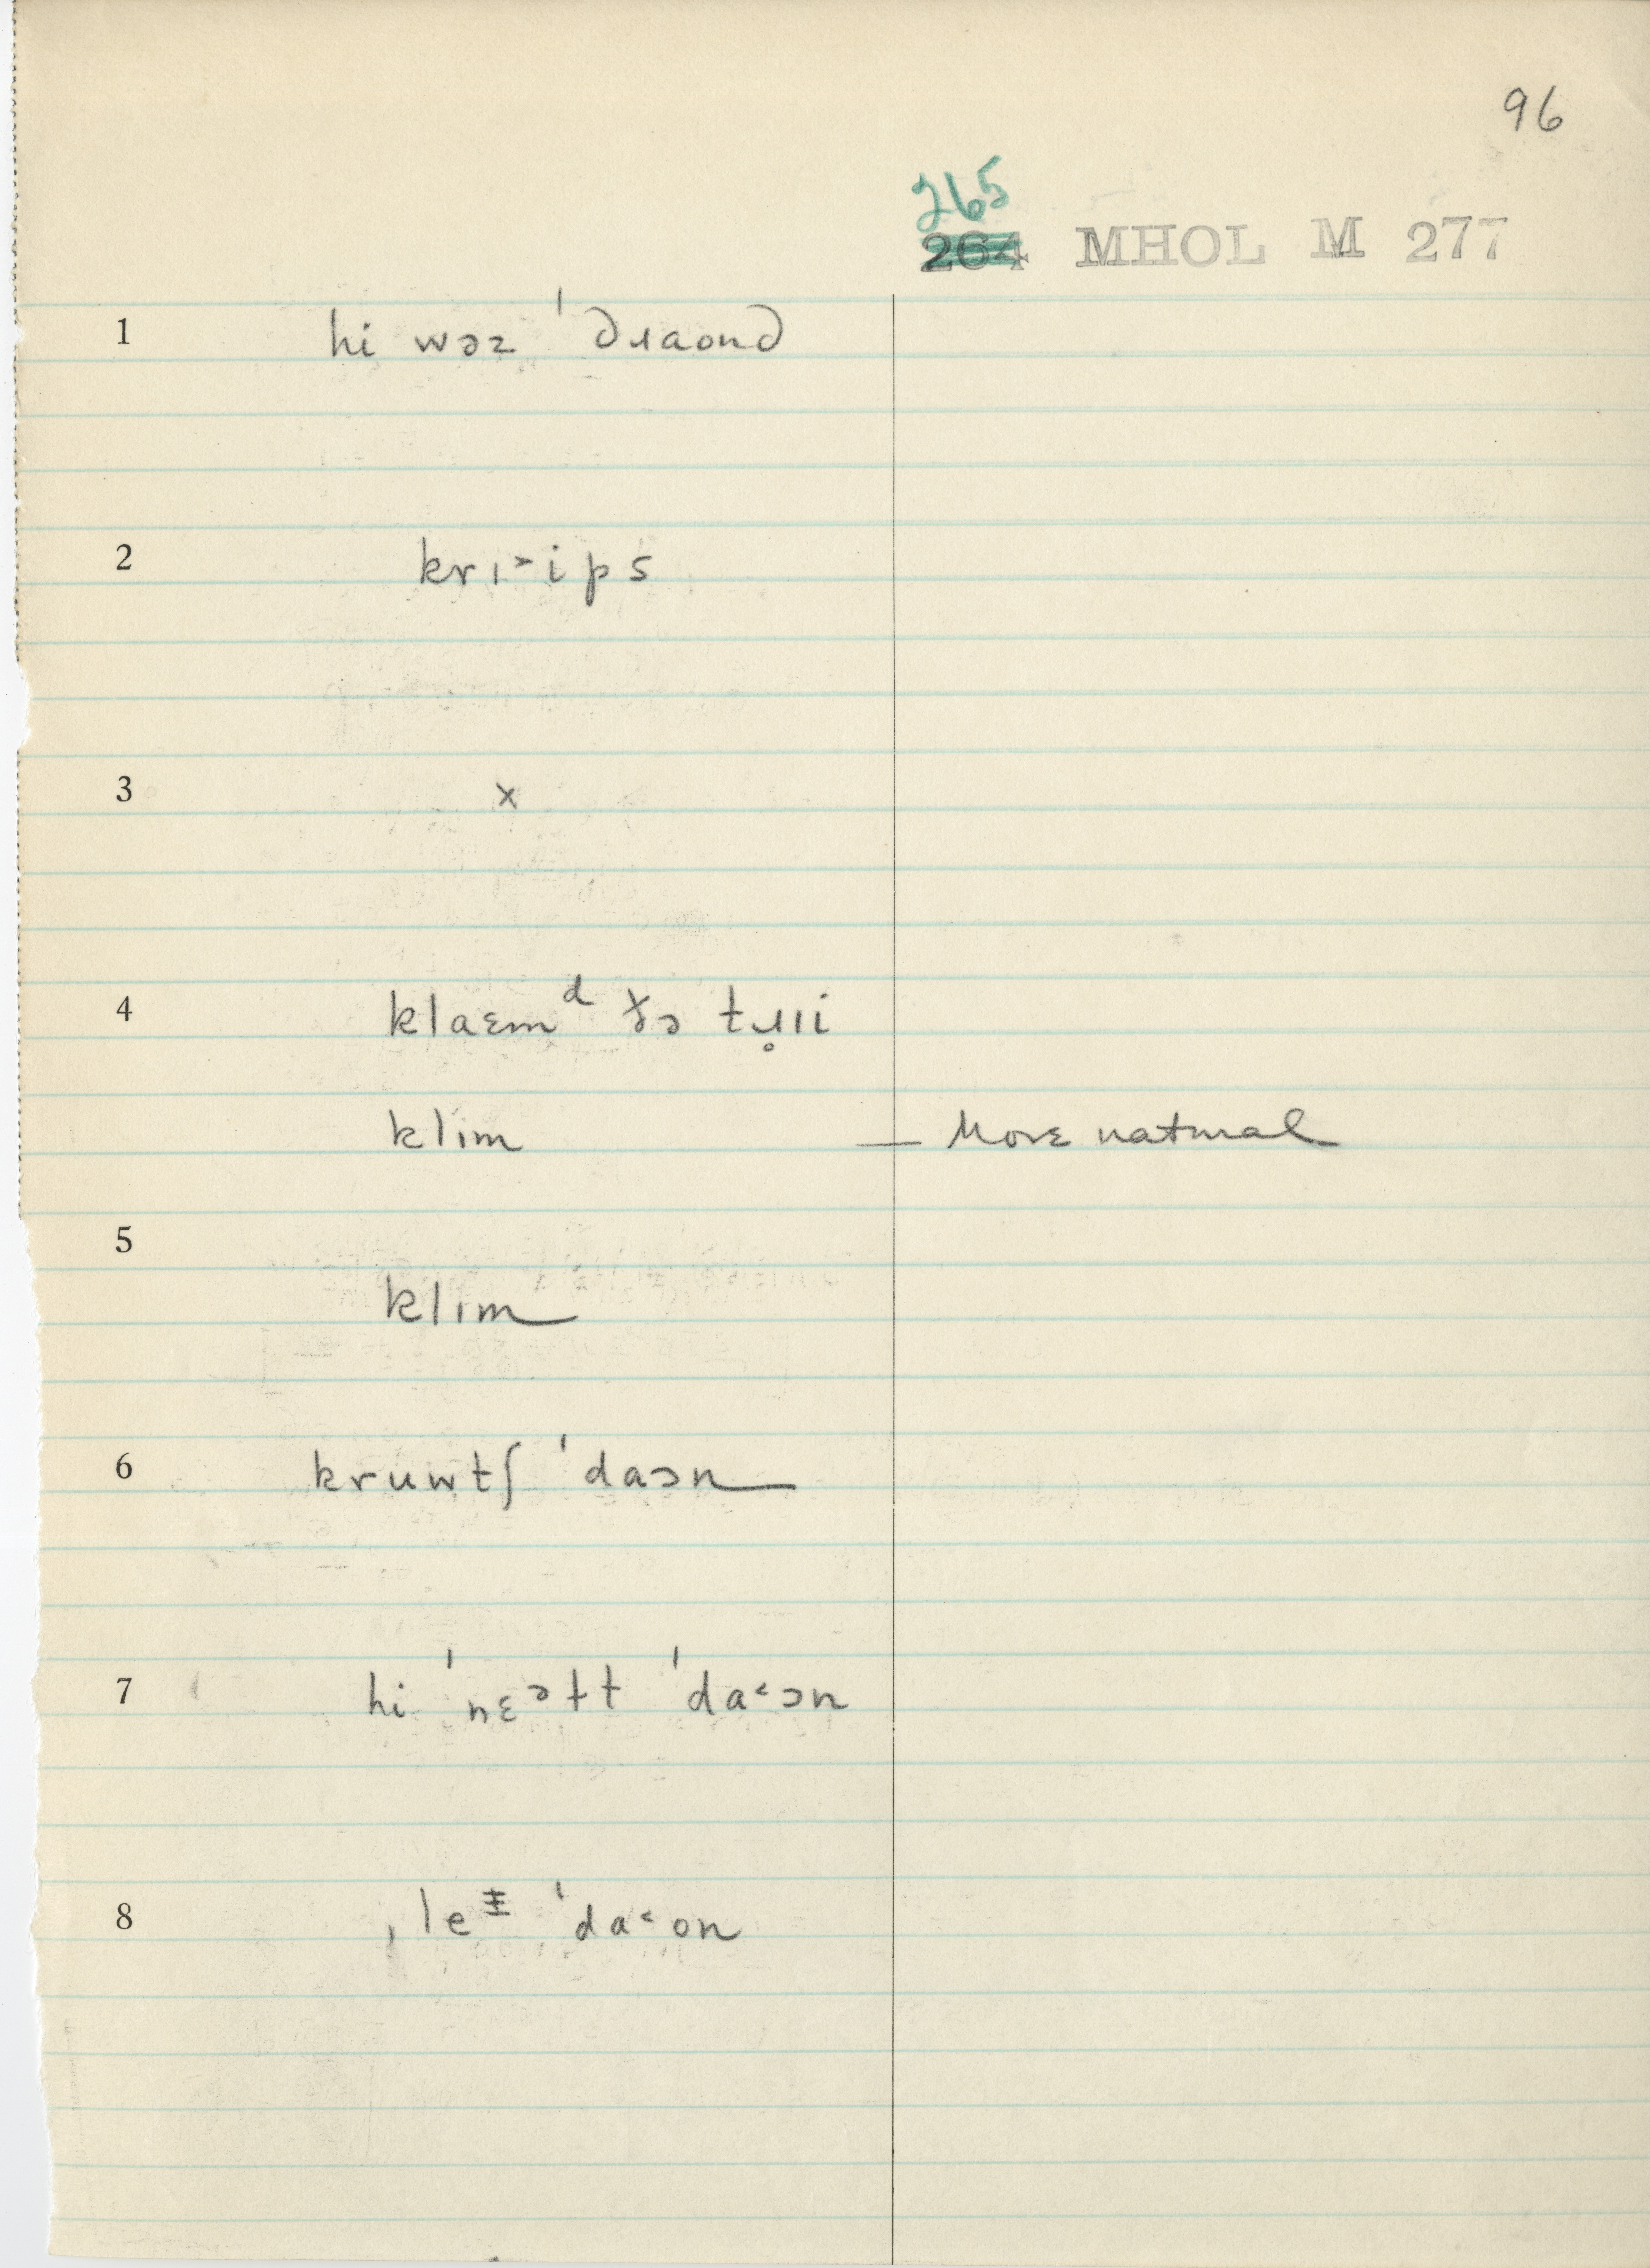 96
265
264 MHOL M 277
1 hi wəz ˈdɹaond
2 krɪ˃ips
3 x
4 klaɛmᵈ ðə tɹ̥ɪi
klɪm — More natural
5
klɪm
6 kruwtʃ ˈdaɔn
7 hi ˈnɛᵊɫt ˈda˂ɔn
8 ˌle ˈda˂on